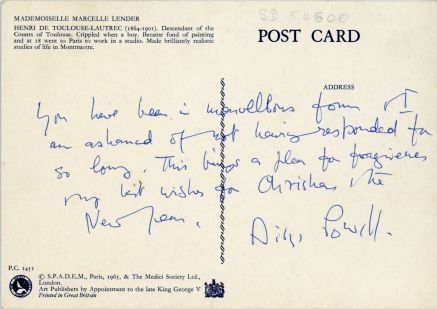 MADEMOISELLE MARCELLE LENDER
HENRI DE TOULOUSE-LAUTREC (1864-1901). Descendant of the
Counts of Toulouse. Crippled when a boy. Became fond of painting
and at 18 went to Paris to work in a studio. Made brilliantly realistic
studies of life in Montmartre.
SD 54600
POST CARD
ADDRESS
You have been in marvellous form & I
am ashamed of not having responded for
so long. This brings a plea for forgiveness
my best wishes for Christmas & the
New Year.
Dilys Powell.
P.C. 1451
© S.P.A.D.E.M., Paris, 1965, & The Medici Society Ltd.,
London.
Art Publishers by Appointment to the late King George V
Printed in Great Britain